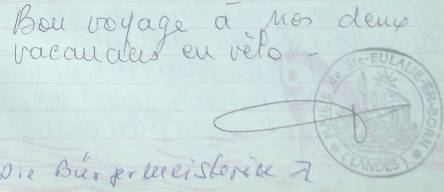 Bon voyage à nos deux
vacanciers en vélo -
MAIRIE de Ste-EULALIE-EN-BORN
(LANDES)
Die Bürgermeisterin